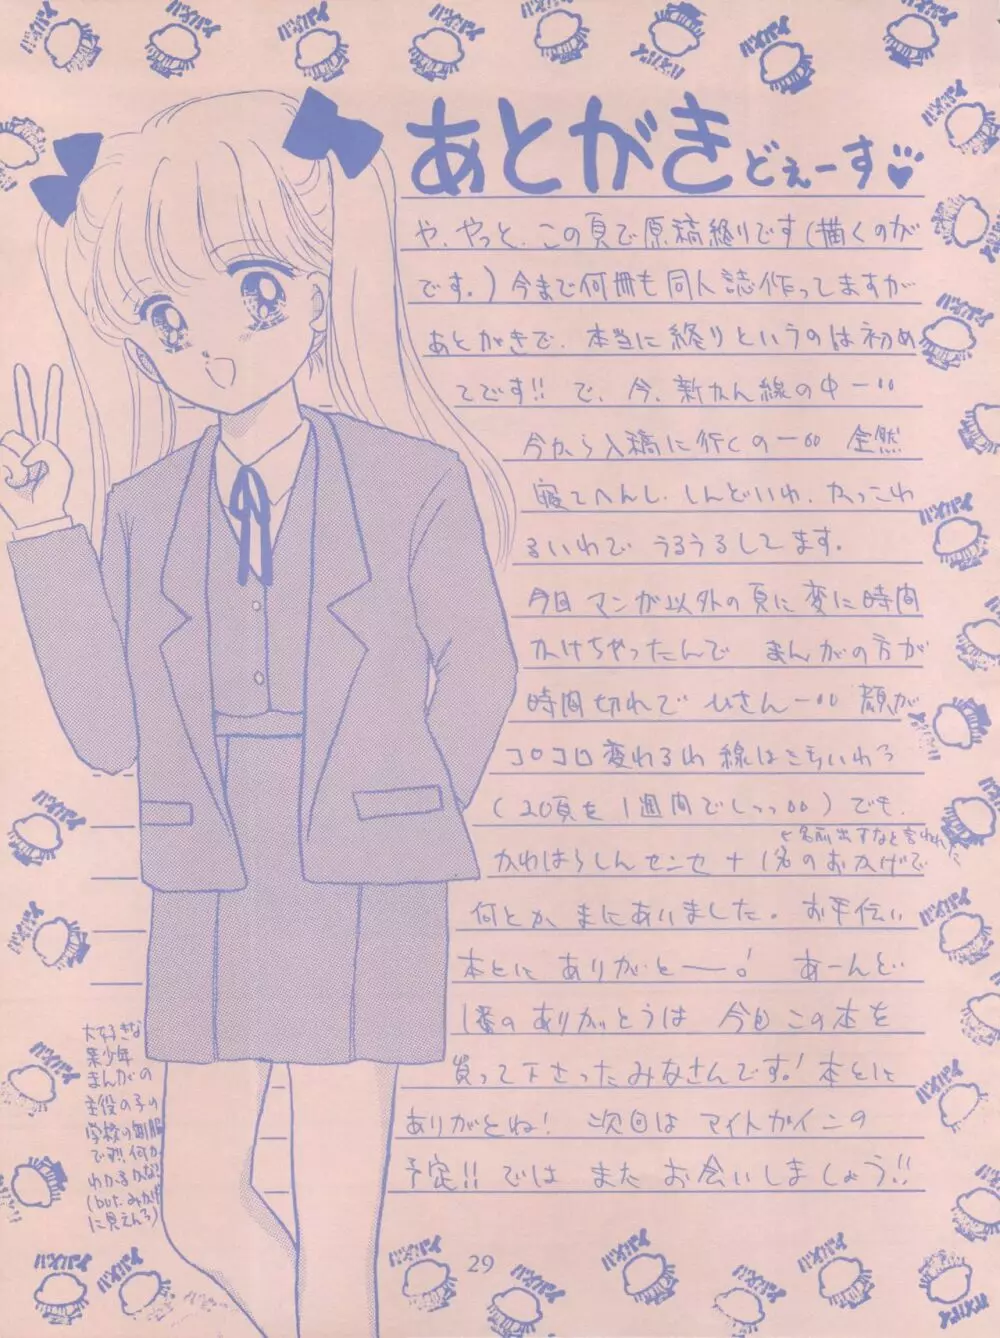 あとがきどぇーす♡
や、やっと、この頁で原稿終りです(描くのが
です。)今まで何冊も同人誌作ってますが
あとがきで、本当に終りというのは初め
てです!! で、今、新かん線の中ー
今から入稿に行くのー 全然
寝てへんし、しんどいわ、かっこわ
るいわで うるうるしてます。
今日 マンガ以外の頁に変に時間
かけちゃったんで まんがの方が
時間切れで ひさんー 顔が
コロコロ変わるわ 線はきちゃいわで
(20頁を1週間でしっ)でも、
←名前出すなと言われた
かわはらしんセンセ+1名のおかげで
何とか まにあいました。お手伝い
本とに ありがとーー! あーんど
1番のありがとうは 今日この本を
買って下さったみなさんです! 本とに
ありがとね! 次回は マイトガインの
予定!! では また お会いしましょう!!
大好きな
某少年
まんがの
主役の子の
学校の制服
です!! 何か
わかるかな
(but、みかけ
に見えんろ)
バイバイ
29